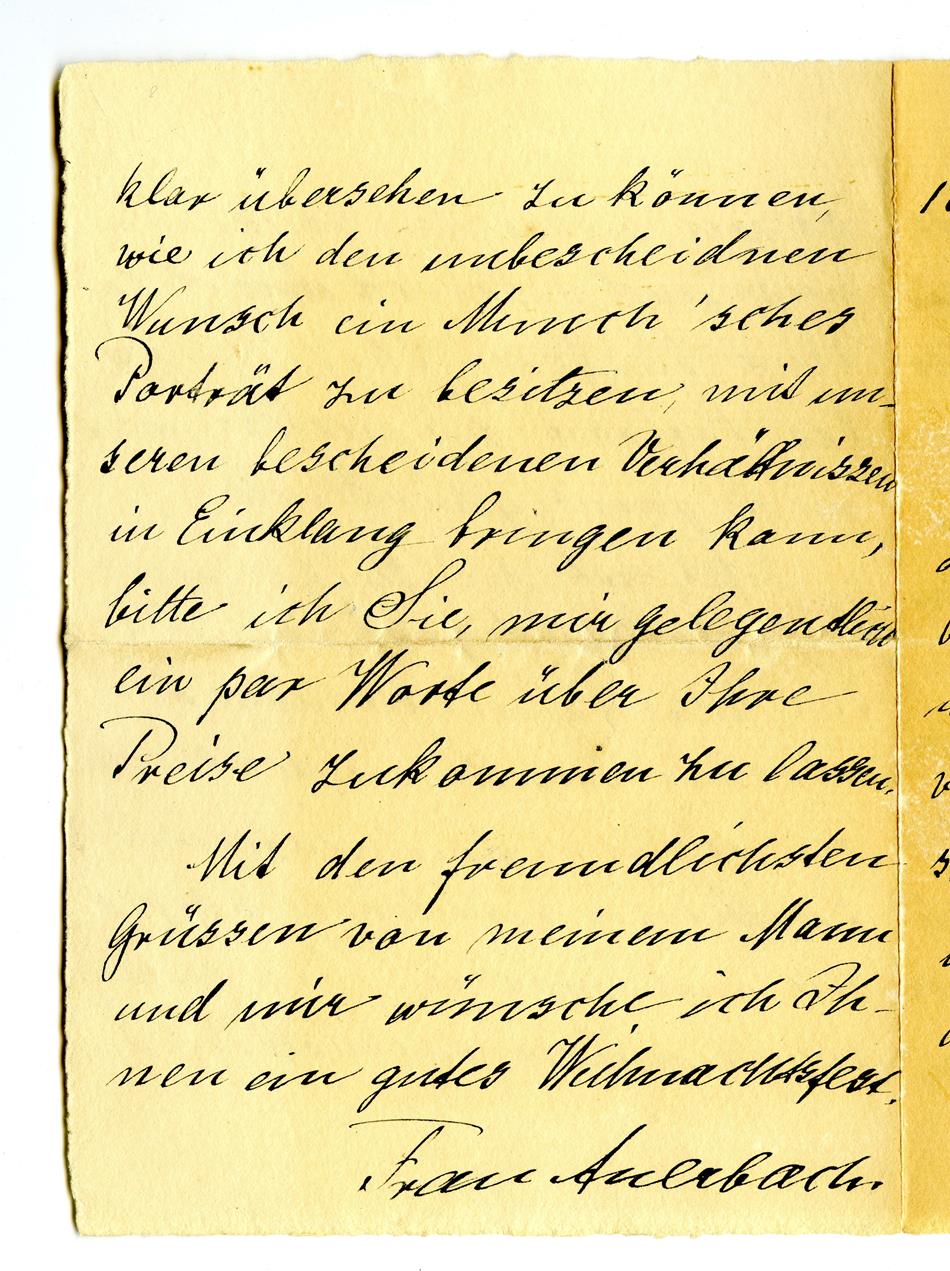 klar übersehen zu können,
wie ich den unbescheidnen
Wunsch ein Munch'sches
Porträt zu besitzen, mit un-
seren bescheidenen Verhältnissen
in Einklang bringen kann,
bitte ich Sie, mir gelegentlich
ein par Worte über Ihre
Preise zukommen zu lassen.
Mit den freundlichsten
Grüssen von meinem Mann
und mir wünsche ich Ih-
nen ein gutes Weihnachtsfest.
Frau Auerbach.